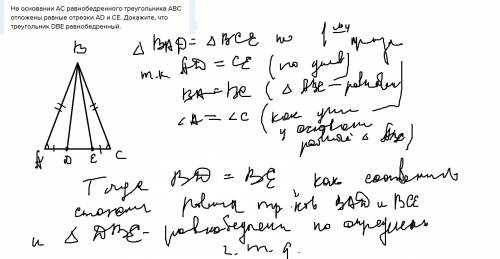 На основании AC равнобедренного треугольника ABC
отложены равные отрезки AD и CE. Докажите, что
треугольник DBE равнобедренный.
B
A D E C
△ BAD = △ BCE по I
т.к AD = CE (по усл)
BA = BC (△ ABC – равнобед
∠A = ∠C (как углы
△ ABC)
Тогда BD = BE как соответств
стороны равных тр-ков BAD и BCE
и △ DBE – равнобедрен по определен
ч. т. д.